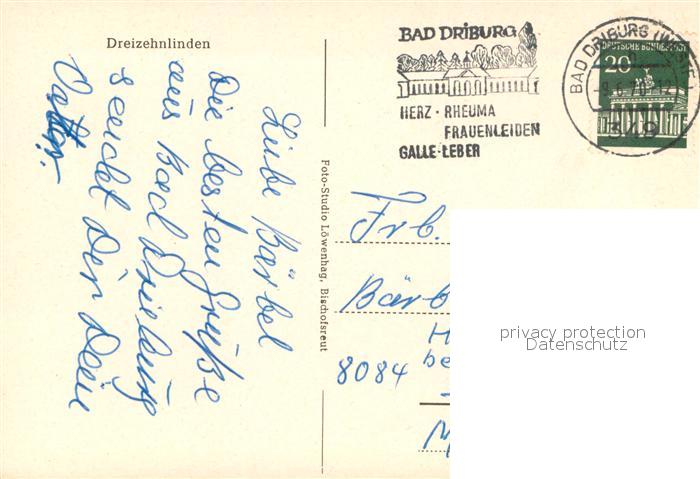 Dreizehnlinden
Liebe Bärbel
Die besten Grüße
aus Bad Driburg
sendet Dir Dein
Foto-Studio Löwenhag, Bischofsreut
BAD DRIBURG
HERZ · RHEUMA
FRAUENLEIDEN
GALLE · LEBER
BAD DRIBURG
-9.6.70-12
349
DEUTSCHE BUNDESPOST
20
Frb.
Bärb
H
be
8084
M
privacy protection
Datenschutz